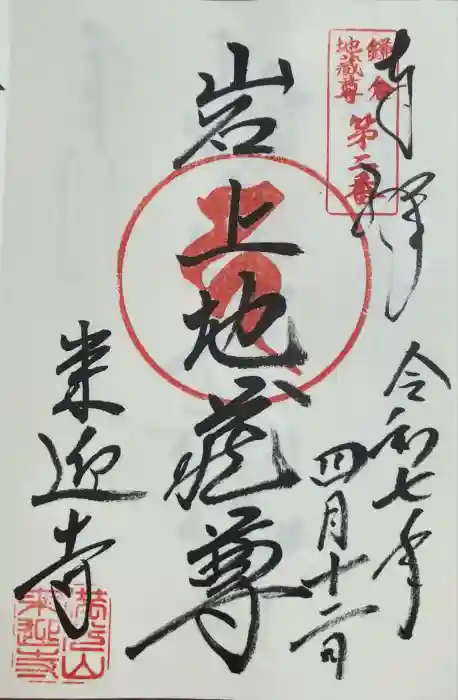 奉拝
鎌倉
地蔵尊
第二番
令和七年
四月十二日
岩上地蔵尊
来迎寺
来迎寺